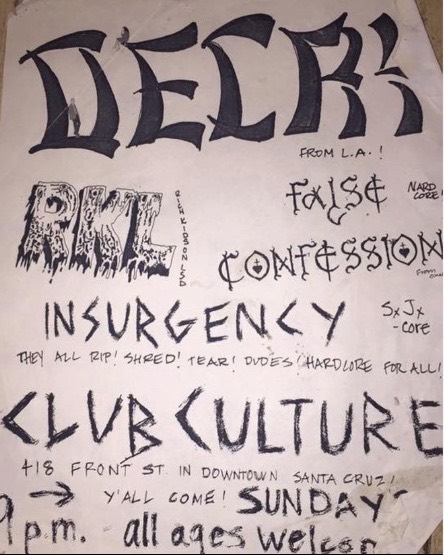 DECRY
FROM L.A.!
RKL
RICH KIDS ON LSD
FALSE
NARD
CORE!
CONFESSION
From
INSURGENCY
SxJx
-core
THEY ALL RIP! SHRED! TEAR! DUDES! HARDCORE FOR ALL!
CLUB CULTURE
418 FRONT ST. IN DOWNTOWN SANTA CRUZ!
→ Y'ALL COME! SUNDAY
9 p.m. all ages